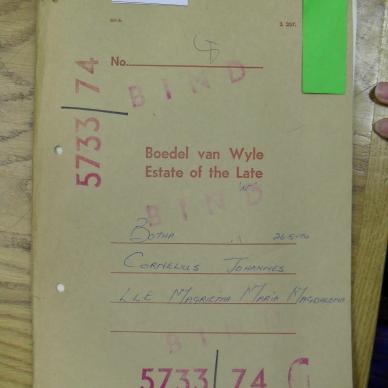 No.
5733/74
BIND
Boedel van Wyle
Estate of the Late
BIND
BOTHA 26-5-74
CORNELIUS JOHANNES
LLE MAGRIETHA MARIA MAGDALENA
BIND
5733/74